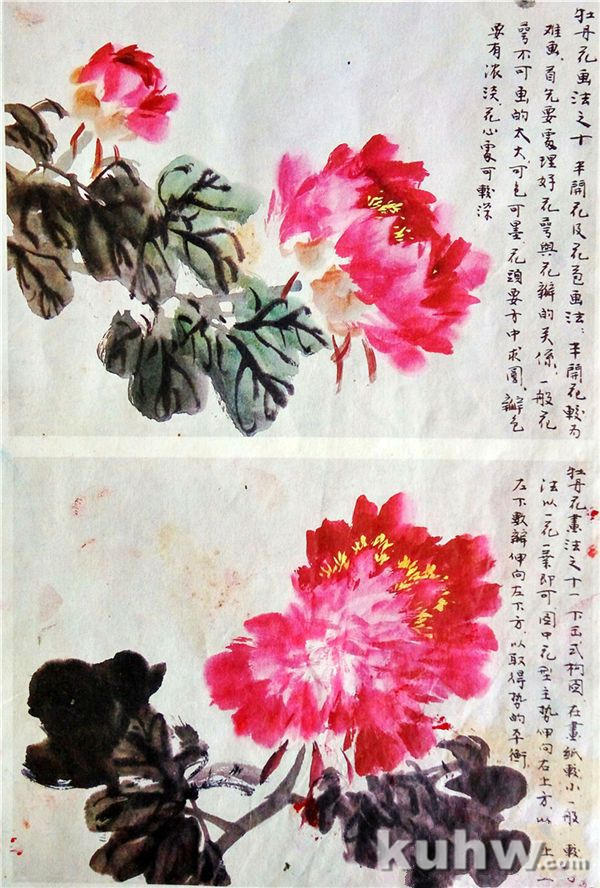 牡丹花画法之十 半開花及花苞画法：半開花較为
难画、首先要處理好花萼與花瓣的关係、一般花
萼不可画的太大、可色可墨、花頭要方中求圓、瓣色
要有浓淡、花心處可較深
牡丹花畫法之十一 下式构图 在畫紙較小一般
法以一花一葉即可 图中花型主势伸向右上方、以
左下數瓣伸向左下方、以取得势的平衡
kuhw.com